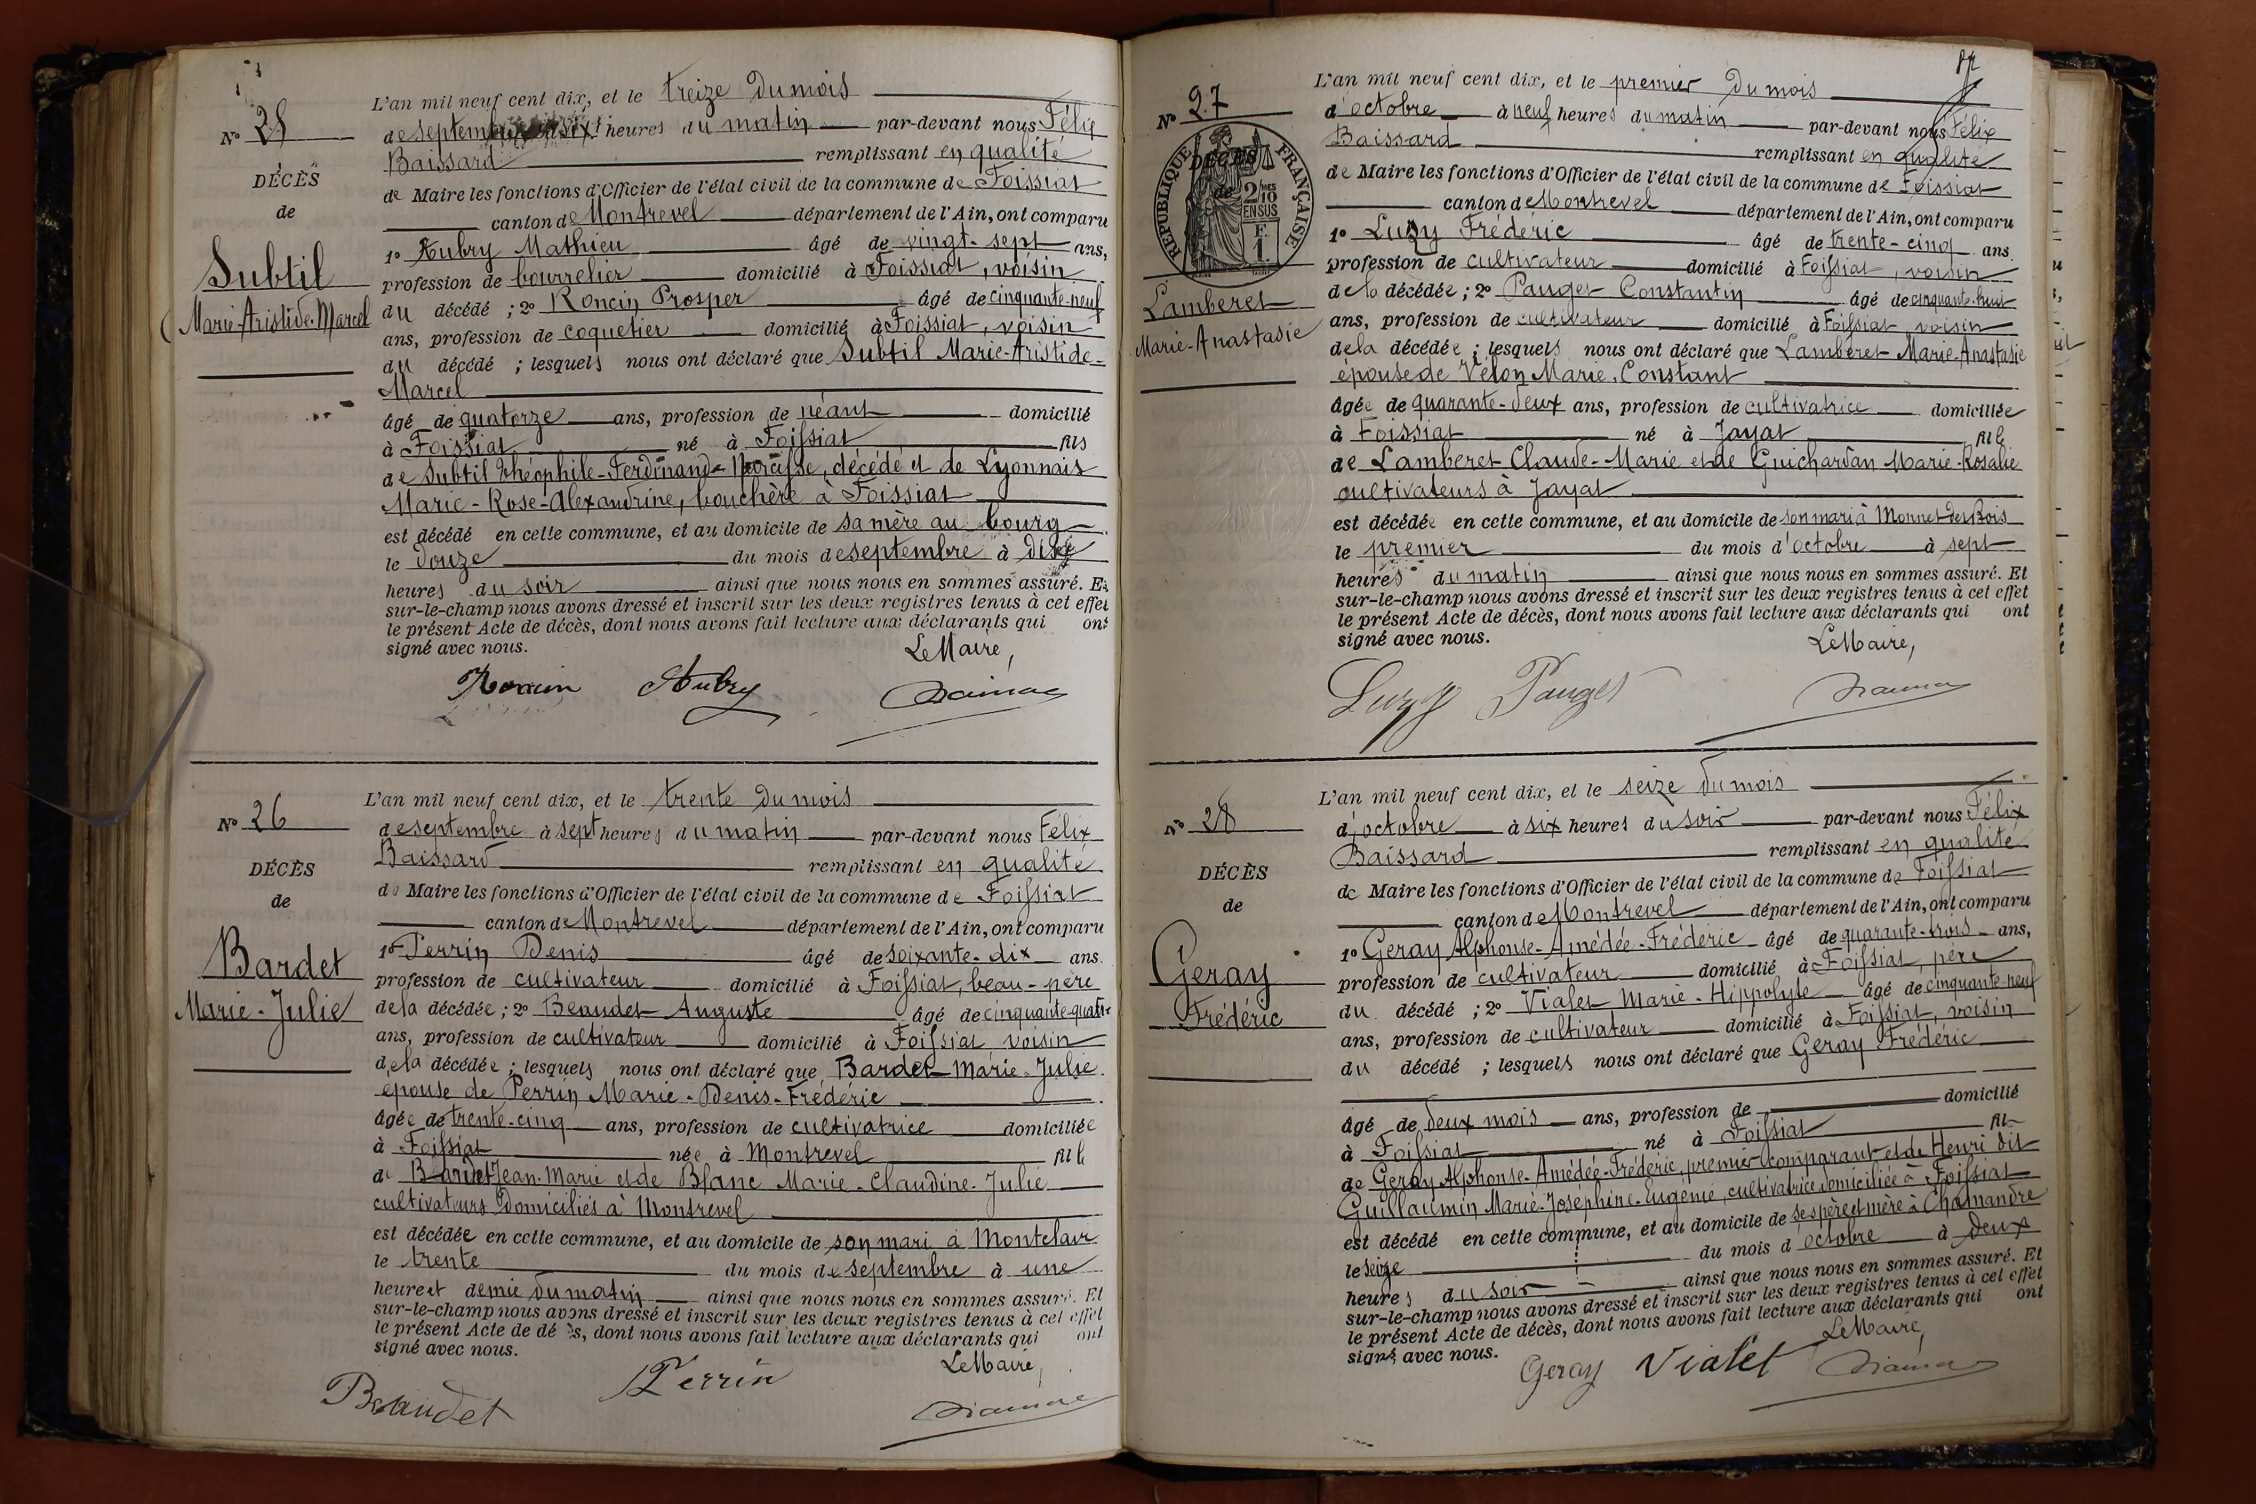 L'an mil neuf cent dix, et le treize du mois
No 25
de septembre à six heures du matin par-devant nous Félix
Baissard remplissant en qualité
DÉCÈS
de Maire les fonctions d'Officier de l'état civil de la commune de Foissiat
de
canton de Montrevel département de l'Ain, ont comparu
1o Aubry Mathieu âgé de vingt-sept ans,
Subtil
profession de bourrelier domicilié à Foissiat, voisin
Marie-Aristide-Marcel
du décédé ; 2o Roncin Prosper âgé de cinquante-neuf
ans, profession de coquetier domicilié à Foissiat, voisin
du décédé ; lesquels nous ont déclaré que Subtil Marie-Aristide-
Marcel
âgé de quatorze ans, profession de néant domicilié
à Foissiat né à Foissiat fils
de Subtil Théophile-Ferdinand-Narcisse, décédé et de Lyonnais
Marie-Rose-Alexandrine, bouchère à Foissiat
est décédé en cette commune, et au domicile de sa mère au bourg
le douze du mois de septembre à dix
heures du soir ainsi que nous nous en sommes assuré. Et
sur-le-champ nous avons dressé et inscrit sur les deux registres tenus à cet effet
le présent Acte de décès, dont nous avons fait lecture aux déclarants qui ont
signé avec nous.
Le Maire,
Roncin Aubry
L'an mil neuf cent dix, et le trente du mois
No 26
de septembre à sept heures du matin par-devant nous Félix
Baissard remplissant en qualité
DÉCÈS
de Maire les fonctions d'Officier de l'état civil de la commune de Foissiat
de
canton de Montrevel département de l'Ain, ont comparu
1o Perrin Denis âgé de soixante-dix ans
Bardet
profession de cultivateur domicilié à Foissiat, beau-père
Marie-Julie
de la décédée ; 2o Beaudet Auguste âgé de cinquante-quatre
ans, profession de cultivateur domicilié à Foissiat voisin
de la décédée ; lesquels nous ont déclaré que Bardet Marie-Julie
épouse de Perrin Marie-Denis-Frédéric
âgée de trente-cinq ans, profession de cultivatrice domiciliée
à Foissiat née à Montrevel fille
de Bardet Jean-Marie et de Blanc Marie-Claudine-Julie
cultivateurs domiciliés à Montrevel
est décédée en cette commune, et au domicile de son mari à Montclair
le trente du mois de septembre à une
heure et demie du matin ainsi que nous nous en sommes assuré. Et
sur-le-champ nous avons dressé et inscrit sur les deux registres tenus à cet effet
le présent Acte de décès, dont nous avons fait lecture aux déclarants qui ont
signé avec nous.
Le Maire,
Beaudet Perrin
L'an mil neuf cent dix, et le premier du mois
No 27
d'octobre à neuf heures du matin par-devant nous Félix
Baissard remplissant en qualité
RÉPUBLIQUE FRANÇAISE
DÉCÈS
de
2/10 MES EN SUS
F. 1
de Maire les fonctions d'Officier de l'état civil de la commune de Foissiat
canton de Montrevel département de l'Ain, ont comparu
1o Luzy Frédéric âgé de trente-cinq ans
profession de cultivateur domicilié à Foissiat, voisin
Lamberet
Marie-Anastasie
de la décédée ; 2o Pauget Constantin âgé de cinquante-huit
ans, profession de cultivateur domicilié à Foissiat voisin
de la décédée ; lesquels nous ont déclaré que Lamberet Marie-Anastasie
épouse de Vélon Marie-Constant
âgée de quarante-deux ans, profession de cultivatrice domiciliée
à Foissiat né à Jayat fille
de Lamberet Claude-Marie et de Guichardan Marie-Rosalie
cultivateurs à Jayat
est décédée en cette commune, et au domicile de son mari à Monnet des Bois
le premier du mois d'octobre à sept
heures du matin ainsi que nous nous en sommes assuré. Et
sur-le-champ nous avons dressé et inscrit sur les deux registres tenus à cet effet
le présent Acte de décès, dont nous avons fait lecture aux déclarants qui ont
signé avec nous.
Le Maire,
Luzy Pauget
L'an mil neuf cent dix, et le seize du mois
No 28
d'octobre à six heures du soir par-devant nous Félix
Baissard remplissant en qualité
DÉCÈS
de Maire les fonctions d'Officier de l'état civil de la commune de Foissiat
de
canton de Montrevel département de l'Ain, ont comparu
1o Geray Alphonse-Amédée-Frédéric âgé de quarante-trois ans,
Geray
profession de cultivateur domicilié à Foissiat, père
Frédéric
du décédé ; 2o Vialet Marie-Hippolyte âgé de cinquante-neuf
ans, profession de cultivateur domicilié à Foissiat, voisin
du décédé ; lesquels nous ont déclaré que Geray Frédéric
âgé de deux mois ans, profession de domicilié
à Foissiat né à Foissiat fils
de Geray Alphonse-Amédée-Frédéric, premier comparant et de Henri dit
Guillaumin Marie-Joséphine-Eugénie, cultivatrice domiciliée à Foissiat
est décédé en cette commune, et au domicile de ses père et mère à Chamandre
le seize du mois d'octobre à deux
heures du soir ainsi que nous nous en sommes assuré. Et
sur-le-champ nous avons dressé et inscrit sur les deux registres tenus à cet effet
le présent Acte de décès, dont nous avons fait lecture aux déclarants qui ont
signé avec nous.
Le Maire,
Geray Vialet